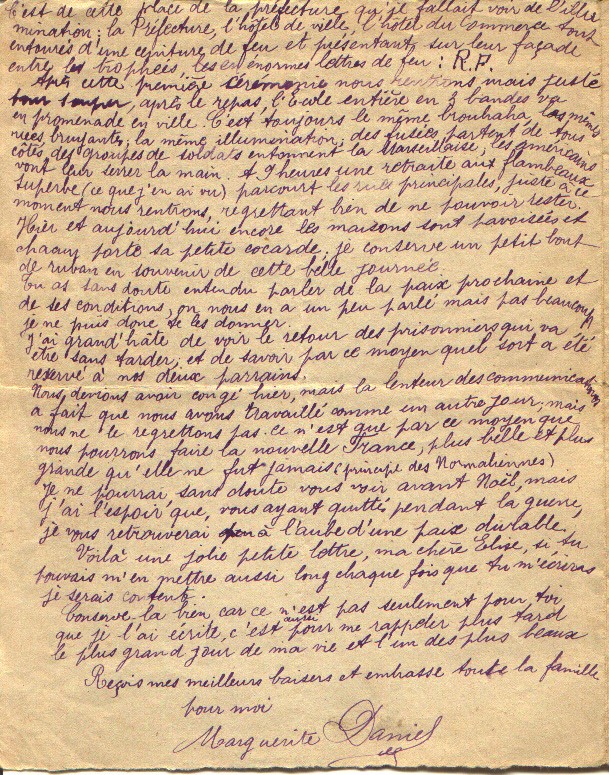 C'est de cette place de la préfecture qu'il fallait voir l'illu
mination : la Préfecture, l'hôtel de ville, l'hôtel du Commerce sont
entourés d'une ceinture de feu et présentant sur leur façade
entre les trophées, les énormes lettres de feu : R.F.
Après cette première cérémonie nous rentrions mais juste
pour souper, après le repas, l'Ecole entière en 3 bandes va
en promenade en ville. C'est toujours le même brouhaha, les mêmes
nuées bruyantes, la même illumination ; des fusées partent de tous
côtés, des groupes de soldats entonnent la Marseillaise, les américains
vont leur serrer la main. A 9 heures une retraite aux flambeaux
superbe (ce que j'en ai vu) parcourt les rues principales, juste à ce
moment nous rentrons, regrettant bien de ne pouvoir rester.
Hier et aujourd'hui encore les maisons sont pavoisées et
chacun porte sa petite cocarde, je conserve un petit bout
de ruban en souvenir de cette belle journée
Tu as sans doute entendu parler de la paix prochaine et
de ses conditions, on nous en a un peu parlé mais pas beaucoup
je ne puis donc te les donner.
J'ai grand'hâte de voir le retour des prisonniers qui va
être sans tarder, et de savoir par ce moyen quel sort a été
réservé à nos deux parrains.
Nous devions avoir congé hier, mais la lenteur des communications
a fait que nous avons travaillé comme un autre jour ; mais
nous ne le regrettons pas. ce n'est que par ce moyen que
nous pourrons faire la nouvelle France, plus belle et plus
grande qu'elle ne fut jamais (principe des Normaliennes)
Je ne pourrai sans doute vous voir avant Noël, mais
j'ai l'espoir que, vous ayant quittés pendant la guerre,
je vous retrouverai à l'aube d'une paix durable.
Voilà une jolie petite lettre, ma chère Elise, si tu
pouvais m'en mettre aussi long chaque fois que tu m'écrivais
je serais contente.
Conserve-la bien car ce n'est pas seulement pour toi
que je l'ai écrite, c'est aussi pour me rappeler plus tard
le plus grand jour de ma vie et l'un des plus beaux
Reçois mes meilleurs baisers et embrasse toute la famille
pour moi
Marguerite Daniel